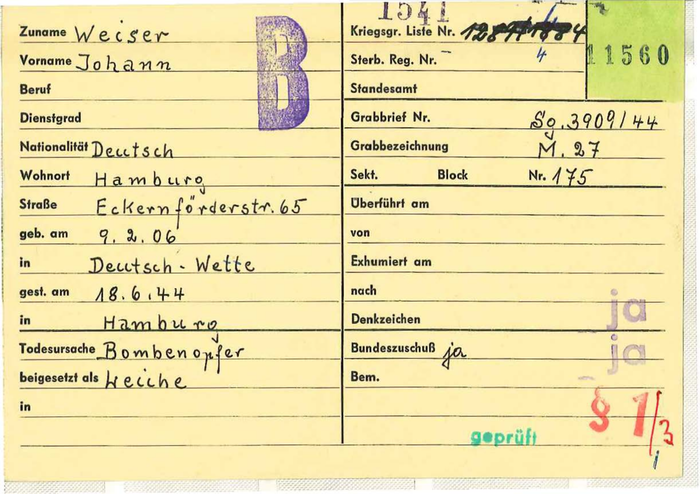 Zuname Weiser
Vorname Johann
Beruf
Dienstgrad
Nationalität Deutsch
Wohnort Hamburg
Straße Eckernförderstr. 65
geb. am 9.2.06
in Deutsch-Wette
gest. am 18.6.44
in Hamburg
Todesursache Bombenopfer
beigesetzt als Leiche
in
B
1541
Kriegsgr. Liste Nr.
Sterb. Reg. Nr. 4
Standesamt
11560
Grabbrief Nr. Sg. 3909/44
Grabbezeichnung M. 27
Sekt. Block Nr. 175
Überführt am
von
Exhumiert am
nach
Denkzeichen ja
Bundeszuschuß ja ja
Bem.
§ 1/3
geprüft